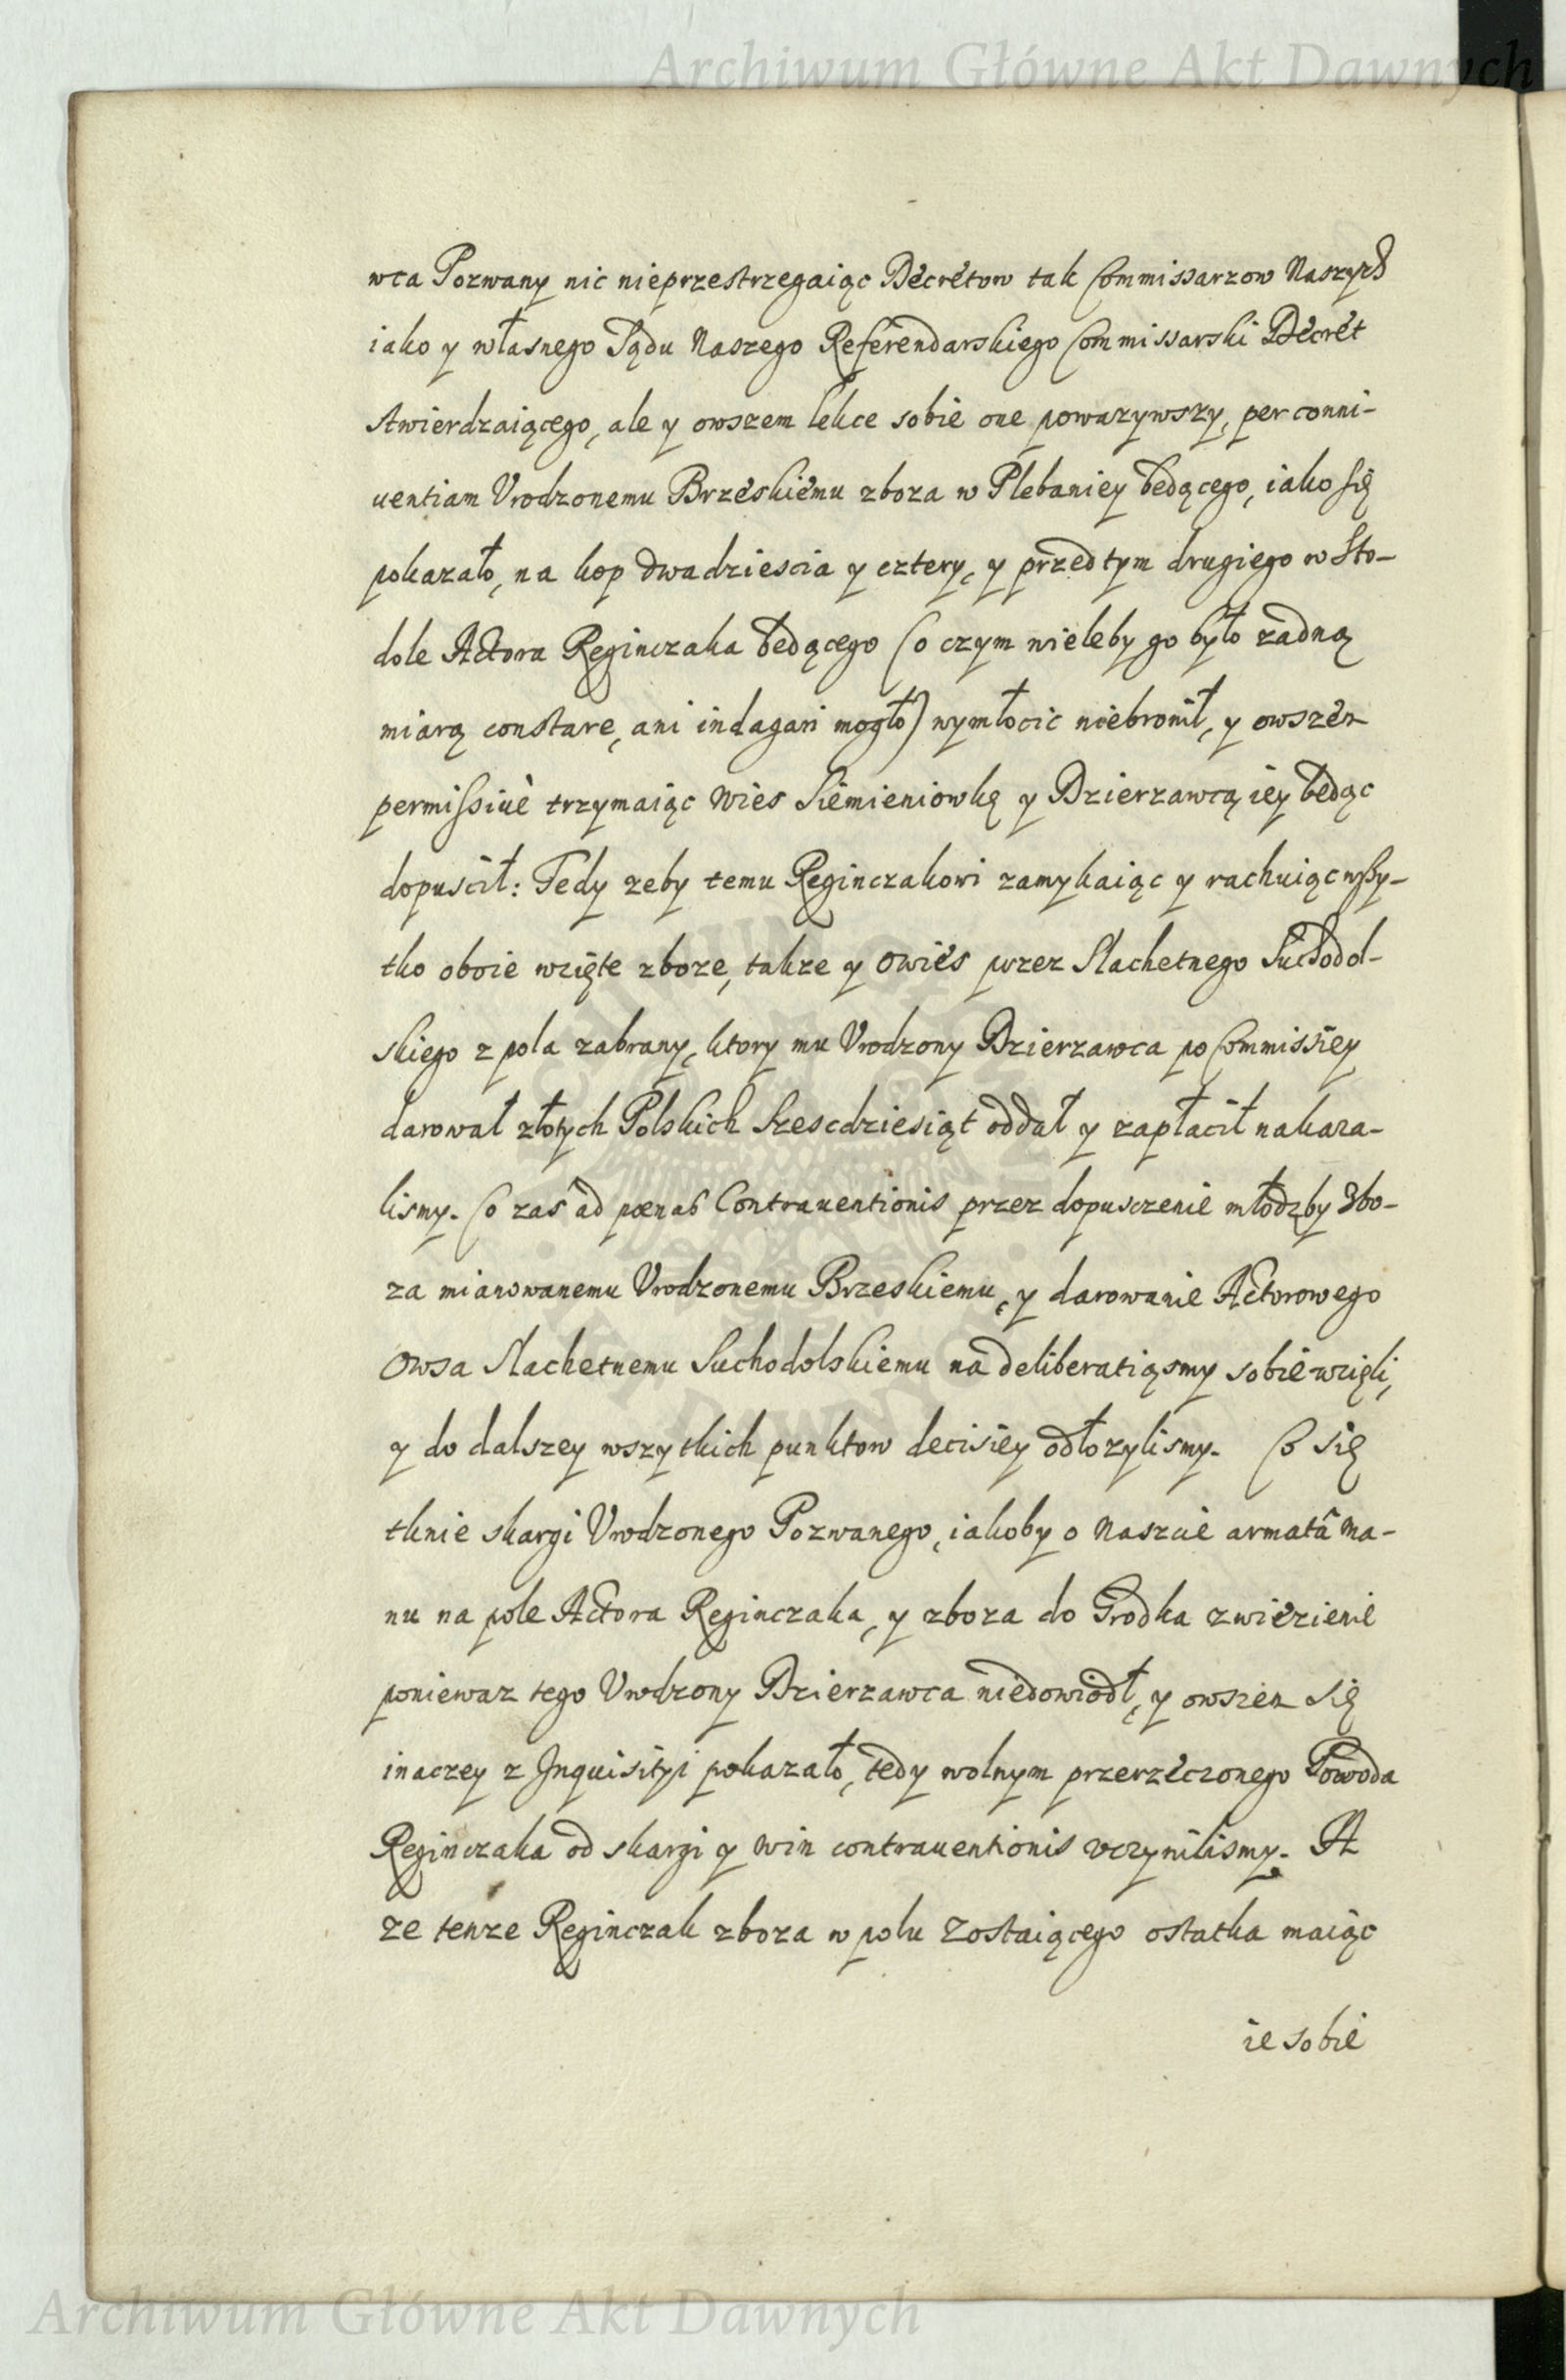 Archiwum Główne Akt Dawnych
wca Pozwany nic nieprzestrzegaiąc Decretow tak Commissarzow Naszych
iako y własnego Sądu Naszego Referendarskiego Commissarski Decret
stwierdzaiącego, ale y owszem lekce sobie one powazywszy, per conni-
uentiam Vrodzonemu Brzeskiemu zboza w Plebaniey będącego, iako się
pokazało, na kop dwadziescia y cztery, y przedtym drugiego w Sto-
dole Actora Reginczaka będącego (o czym wieleby go było zadną
miarą constare, ani indagari mogło) wymłocic niebronił, y owszem
permissiuè trzymaiąc Wies Siemieniowkę y Dzierzawcą iey będąc
dopuscił: Tedy zeby temu Reginczakowi zamykaiąc y rachuiąc wszy-
tko oboie wzięte zboze, takze y Owies przez Slachetnego Suchodol-
skiego z pola zabrany, ktory mu Vrodzony Dzierzawca po Commissiey
darował złotych Polskich Szescdziesiąt oddał y zapłacił nakaza-
lismy. Co zas ad pœnas Contrauentionis przez dopusczenie młodzby Zbo-
za mianowanemu Vrodzonemu Brzeskiemu, y darowanie Actorowego
Owsa Slachetnemu Suchodolskiemu na deliberatiąsmy sobie wzięli,
y do dalszey wszytkich punktow decisiey odłozylismy. Co się
tknie skargi Vrodzonego Pozwanego, iakoby o Naszcie armatâ ma-
nu na pole Actora Reginczaka, y zboza do Grodka zwiezienie
poniewaz tego Vrodzony Dzierzawca niedowiodł, y owszem się
inaczey z Inquisityi pokazało, tedy wolnym przerzeczonego Powoda
Reginczaka od skargi y win contrauentionis vczynilismy. A
ze tenze Reginczak zboza w polu Zostaiącego ostatka maiąc
ie sobie
Archiwum Główne Akt Dawnych